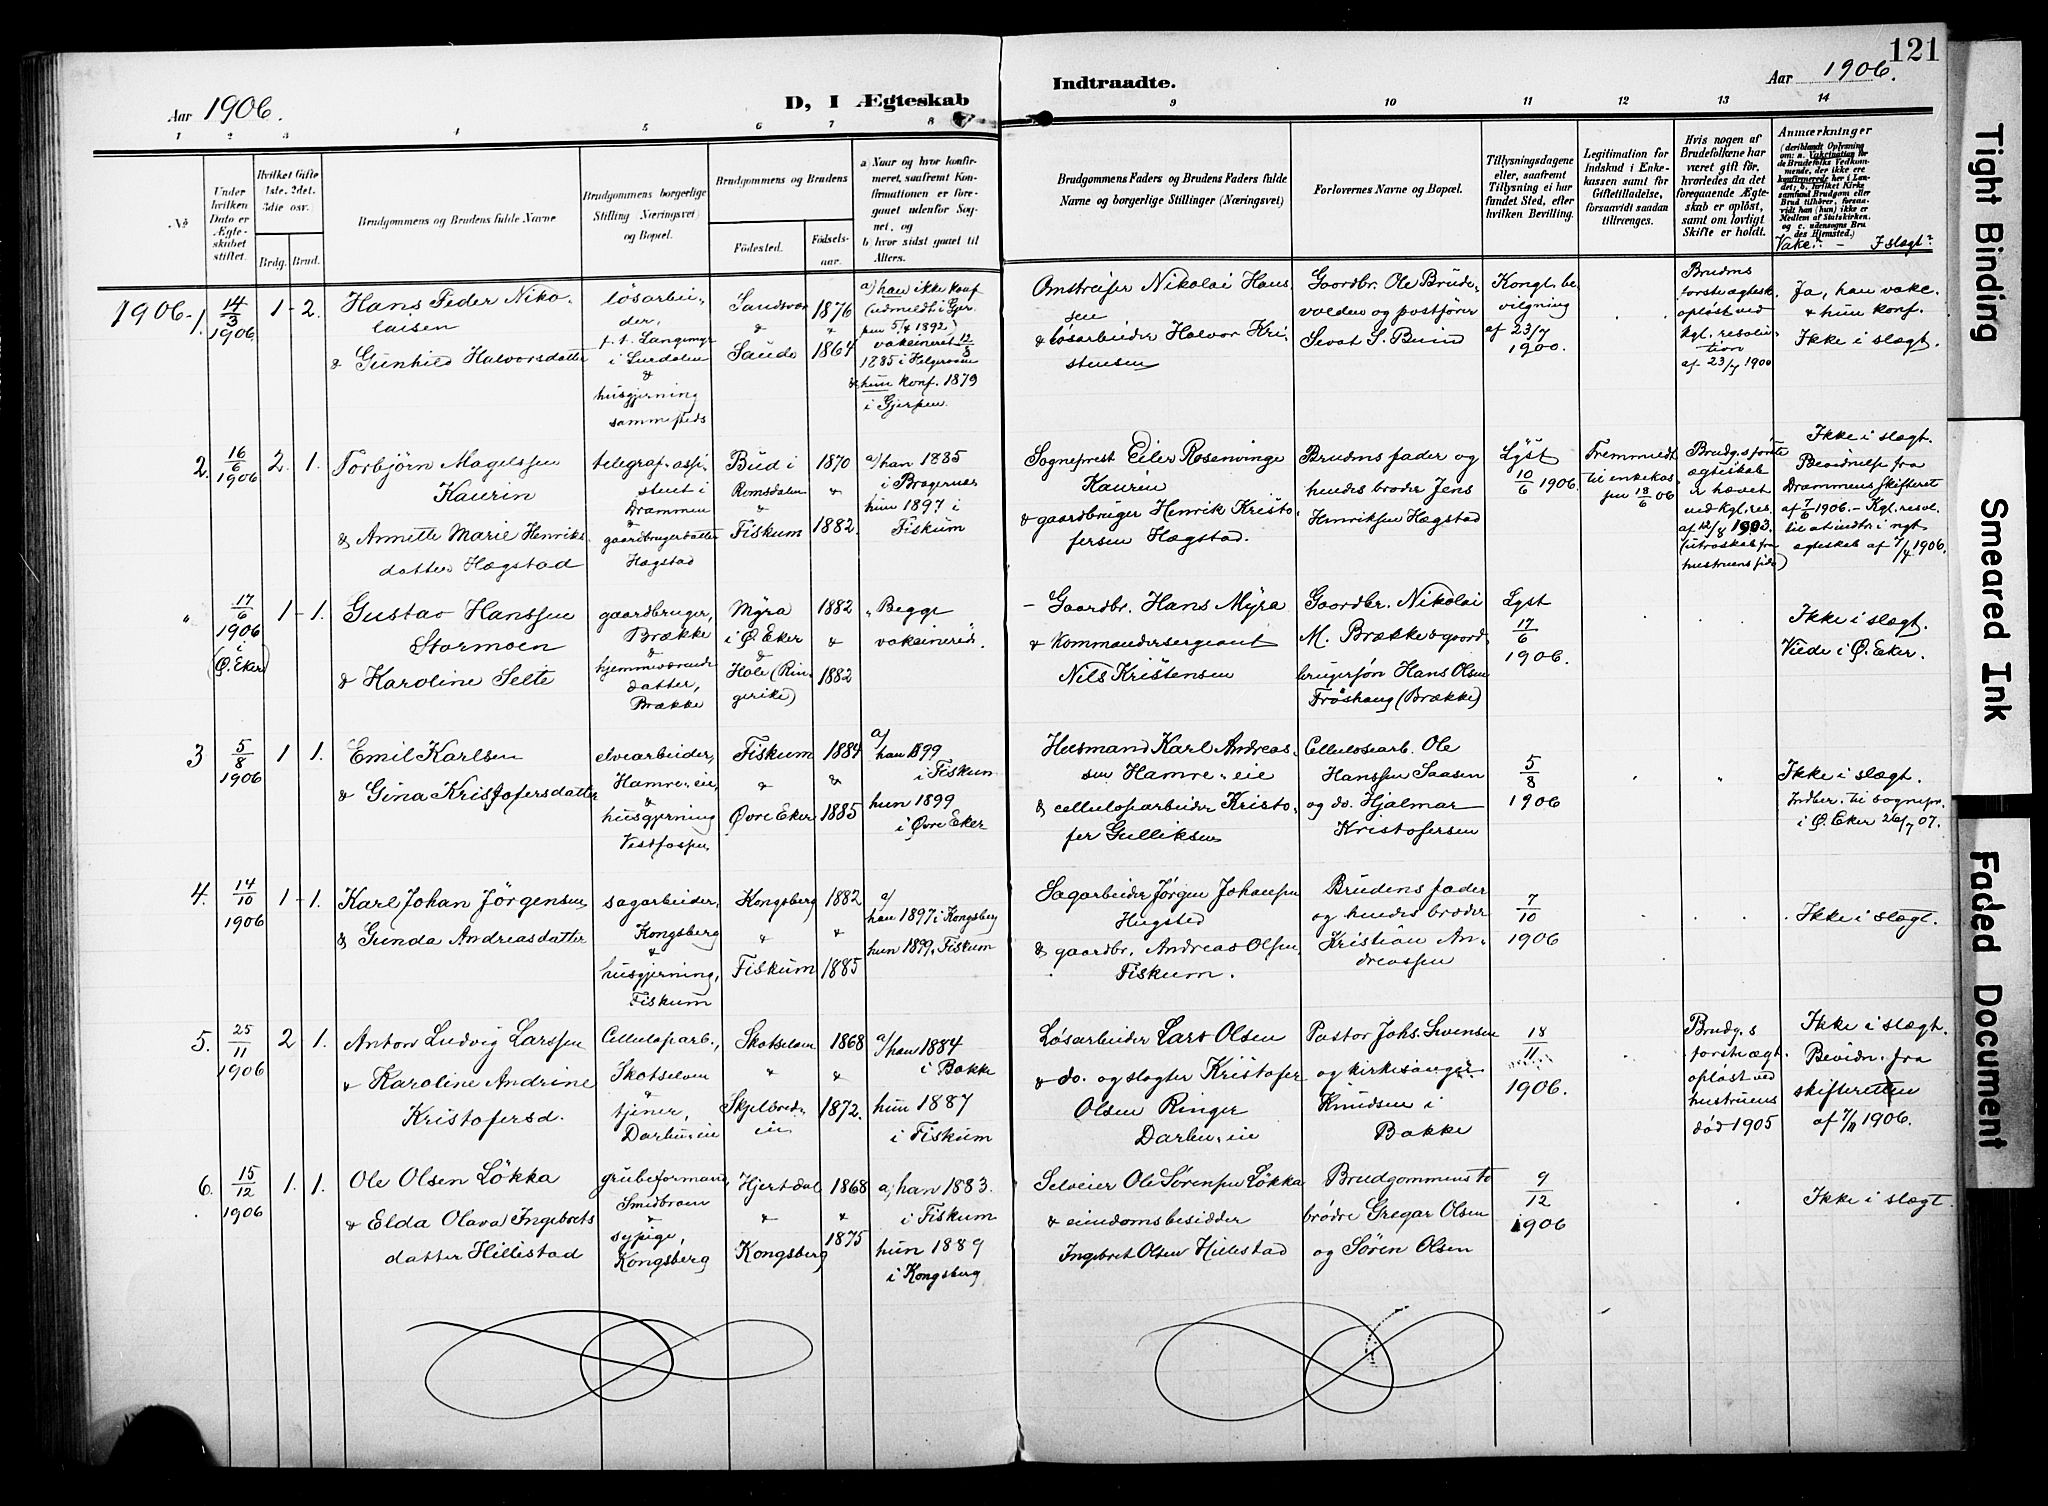 121
Aar 1906.
D, I Ægteskab
Indtraadte.
Aar 1906.
1 2 3 4 5 6 7 8
9 10 11 12 13 14
No
Under hvilken Dato er Ægteskabet stiftet.
Hvilket Gifte 1ste. 2det. 3die osv.
Brdg. Brud.
Brudgommens og Brudens fulde Navne
Brudgommens borgerlige Stilling (Næringsvei) og Bopæl.
Brudgommens og Brudens
Födested.
Födselsaar.
a) Naar og hvor konfirmeret, saafremt Konfirmationen er foregaaet udenfor Sognet, og
b) hvor sidst gaaet til Alters.
Brudgommens Faders og Brudens Faders fulde Navne og borgerlige Stillinger (Næringsvei)
Forlovernes Navne og Bopæl.
Tillysningsdagene eller, saafremt Tillysning ei har fundet Sted, efter hvilken Bevilling.
Legitimation for Indskud i Enkekassen samt for Giftetilladelse, forsaavidt saadan tiltrænges.
Hvis nogen af Brudefolkene har været gift før, hvorledes da det foregaaende Ægteskab er opløst, samt om lovligt Skifte er holdt.
Anmærkninger
(deriblandt Oplysning om: a. Vakcination for de Brudefolks Vedkommende, der ikke ere konfirmerede her i Landet; b. hvilket Kirkesamfund Brudgom eller Brud tilhører, forsaavidt han (hun) ikke er Medlem af Statskirken og c. udensogns Brudes Hjemsted.)
Vakc.n — I slægt?
1906 - 1.
14/3 1906
1 - 2.
Hans Peder Nikolaisen
& Gunhild Halvorsdatter
løsarbeider,
p. t. Langmyr
i Lurdalen
&
husgjerning
sammesteds
Sandsvær
&
Saude
1876
&
1864
a) han ikke konf
(udmeldt i Gjerpen 5/4 1892)
vakcineret 12/3
1885 i Helgeroen
& hun konf. 1879
i Gjerpen.
Omstreifer Nikolai Hanssen
& løsarbeider Halvor Kristensen
Gaardbr. Ole Brudevolden og postfører
Sevat S. Buin
Kongl. bevilgning
af 23/7
1900.
Brudens
første ægtesk.
opløst ved
kgl. resolution
af 23/7 1900
Ja, han vakc.
& hun konf.
Ikke i slægt.
2.
16/6 1906
2. 1.
Torbjörn Magelssen
Kaurin
& Annette Marie Henriksdatter Hægstad
telegrafassistent i
Drammen
&
gaardbrugerdatter
Hægstad
Bud i
Romsdalen
&
Fiskum
1870
&
1882.
a/ han 1885
i Bragernes
hun 1897 i
Fiskum
Sogneprest Eiler Rosenvinge
Kaurin
& gaardbruger Henrik Kristofersen Hægstad.
Brudens fader og
hendes broder Jens
Henriksen Hægstad
Lyst
10/6 1906.
Fremmedt
til enkekassen 18/6 06
Brudg.s første
ægteskab
er hævet
ved kgl. res.
af 12/8 1903.
(utroskab fra
hustruens side)
Ikke i slægt.
Bevidnelse fra
Drammens skifteret
af 7/6 1906. — Kgl. resol.
til at indtr. i nyt
ægteskab af 7/4 1906.
"
17/6 1906
i
(Ø. Eker)
1 - 1.
Gustav Hanssen
Stormoen
& Karoline Selte
gaardbruger,
Brække
&
hjemmeværende
datter,
Brække
Myra
i Ø. Eker
&
Hole (Ringerike)
1882
&
1882
" Begge
vakcinered.
- Gaardbr. Hans Myra
& Kommandersergeant
Nils Kristensen
Gaardbr. Nikolai
M. Brække & gaardbrugersøn Hans Olsen
Frøshaug (Brække)
Lyst
17/6
1906.
Ikke i slægt.
Viede i Ø. Eker.
3
5/8 1906
1 1.
Emil Karlsen
& Gina Kristofersdatter
elvearbeider,
Hamre-eie,
&
husgjerning
Vestfossen
Fiskum
&
Øvre Eker
1884
&
1885
a/
han 1899
i Fiskum
hun 1899
i Øvre Eker
Husmand Karl Andreassen Hamre-eie
& cellulosearbeider Kristofer Gulliksen
Cellulosearb. Ole
Hanssen Saasen
og do. Hjalmar
Kristofersen
5/8
1906
Ikke i slægt.
Indber. til sognepr.
i Ø. Eker 26/7 07.
4.
14/10 1906
1 - 1.
Karl Johan Jörgensen
& Gunda Andreasdatter
sagarbeider,
Kongsberg
&
husgjerning,
Fiskum
Kongsberg
&
Fiskum
1882
&
1885
a/
han 1897 i Kongsberg
hun 1899 i Fiskum
Sagarbeider Jørgen Johansen
Hugsted
& gaardbr. Andreas Olsen
Fiskum.
Brudens fader
og hendes broder
Kristian Andreassen
7/10
1906
Ikke i slægt.
5.
25/11 1906
2 1.
Anton Ludvig Larssen
& Karoline Andrine
Kristofersd.
Cellulosearb.,
Skotselven
&
tjener,
Darbu-eie
Skotselven
&
Skjelbredeie
1868
&
1872.
a/ han 1884
i Bakke
hun 1887
i Fiskum
Løsarbeider Lars Olsen
& do. og slagter Kristofer
Olsen Ringer
Darbu-eie
Pastor Johs. Svensen
og kirkesanger
Knudsen i
Bakke
18/11
1906.
Brudg.s
første ægt.
opløst ved
hustruens
død 1905
Ikke i slægt.
Bevidn. fra
skifteretten
af 7/11 1906.
6.
15/12 1906
1. 1.
Ole Olsen Løkka
& Elda Olava Ingebretsdatter Hillestad
grubeformand
&
sypige,
Kongsberg
Hjertdal
&
Kongsberg
1868
&
1875
a) han 1883.
i Fiskum
hun 1889
i Kongsberg
Selveier Ole Sørensen Løkka
& eiendomsbesidder
Ingebret Olsen Hillestad
Brudgommens to
brødre Gregar Olsen
og Søren Olsen
9/12
1906
Ikke i slægt.
Tight Binding
Smeared Ink
Faded Document